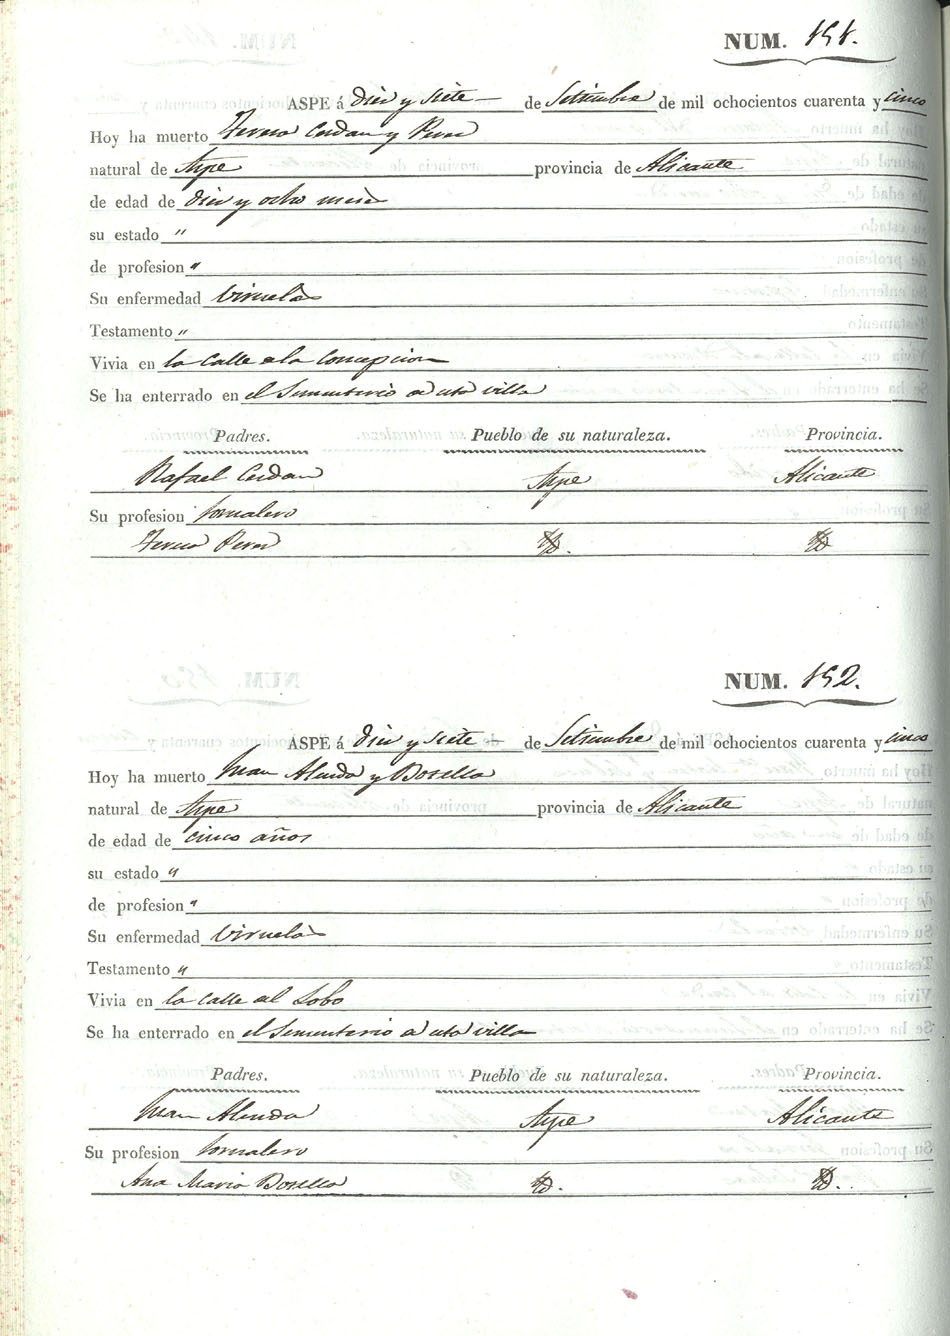 NUM. 151.
ASPE á diez y siete de Setiembre de mil ochocientos cuarenta y cinco
Hoy ha muerto Teresa Cerdan y Perez
natural de Aspe provincia de Alicante
de edad de diez y ocho meses
su estado "
de profesion "
Su enfermedad Viruelas
Testamento "
Vivia en la calle de la Concepcion
Se ha enterrado en el Sementerio de esta villa
Padres. Pueblo de su naturaleza. Provincia.
Rafael Cerdan Aspe Alicante
Su profesion Jornalero
Teresa Perez Yd. Yd.
NUM. 152.
ASPE á diez y siete de Setiembre de mil ochocientos cuarenta y cinco
Hoy ha muerto Juan Alenda y Botella
natural de Aspe provincia de Alicante
de edad de cinco años
su estado "
de profesion "
Su enfermedad Viruelas
Testamento "
Vivia en la calle del Lobo
Se ha enterrado en el Sementerio de esta villa
Padres. Pueblo de su naturaleza. Provincia.
Juan Alenda Aspe Alicante
Su profesion Jornalero
Ana Maria Botella Yd. Yd.